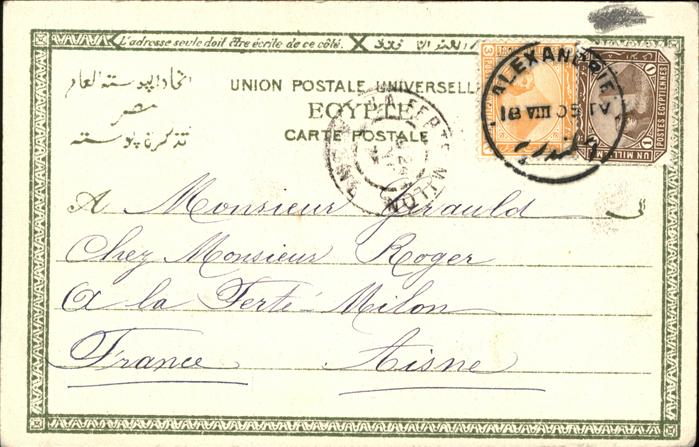 L'adresse seule doit être écrite de ce côté.
UNION POSTALE UNIVERSELLE
EGYPTE
CARTE POSTALE
اتحاد بوسته العام
مصر
تذكرة بوسته
ALEXANDRIE
POSTES EGYPTIENNES
UN MILLIEME
LA FERTE MILON
AISNE
A Monsieur Girauld
الى
Chez Monsieur Roger
a la Ferté-Milon
France Aisne